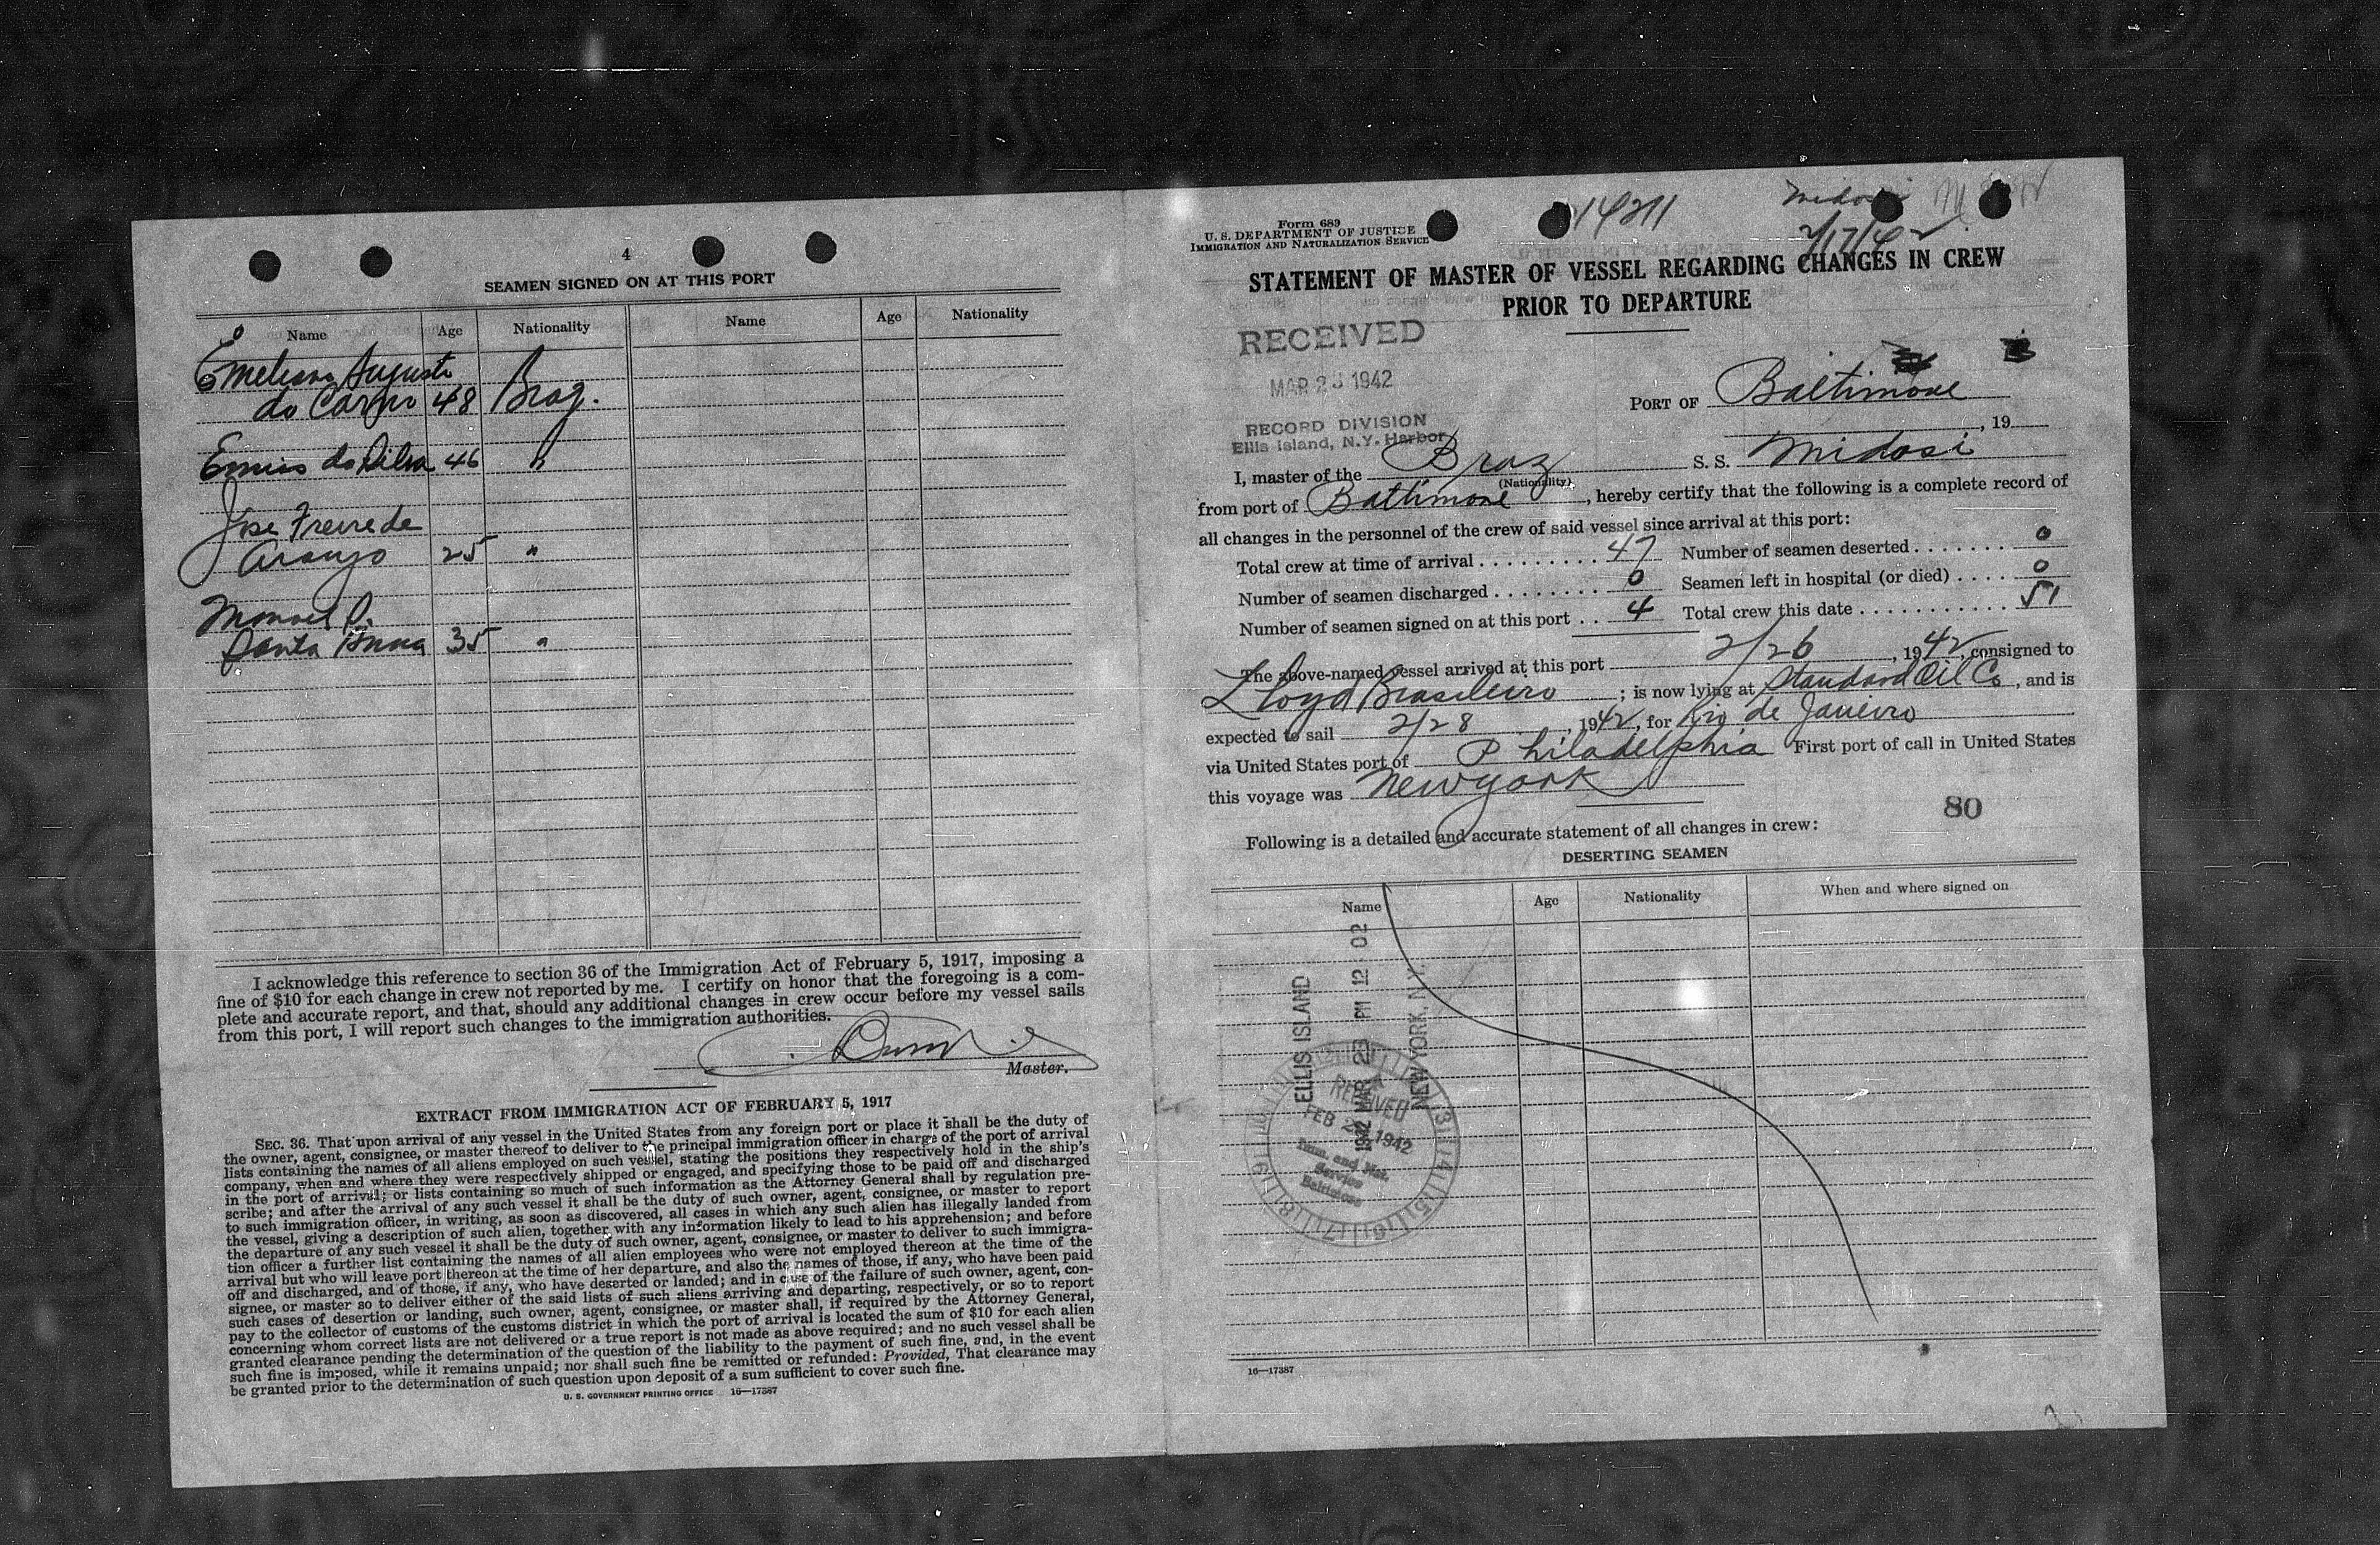 4
SEAMEN SIGNED ON AT THIS PORT
Name Age Nationality Name Age Nationality
Augusto
do Carmo 48 Braz.
da Silva 46 "
Jose Freire de
Araujo 25 "
Manoel
Santa Anna 35 "
I acknowledge this reference to section 36 of the Immigration Act of February 5, 1917, imposing a
fine of $10 for each change in crew not reported by me. I certify on honor that the foregoing is a com-
plete and accurate report, and that, should any additional changes in crew occur before my vessel sails
from this port, I will report such changes to the immigration authorities.
Master.
EXTRACT FROM IMMIGRATION ACT OF FEBRUARY 5, 1917
SEC. 36. That upon arrival of any vessel in the United States from any foreign port or place it shall be the duty of
the owner, agent, consignee, or master thereof to deliver to the principal immigration officer in charge of the port of arrival
lists containing the names of all aliens employed on such vessel, stating the positions they respectively hold in the ship's
company, when and where they were respectively shipped or engaged, and specifying those to be paid off and discharged
in the port of arrival; or lists containing so much of such information as the Attorney General shall by regulation pre-
scribe; and after the arrival of any such vessel it shall be the duty of such owner, agent, consignee, or master to report
to such immigration officer, in writing, as soon as discovered, all cases in which any such alien has illegally landed from
the vessel, giving a description of such alien, together with any information likely to lead to his apprehension; and before
the departure of any such vessel it shall be the duty of such owner, agent, consignee, or master to deliver to such immigra-
tion officer a further list containing the names of all alien employees who were not employed thereon at the time of the
arrival but who will leave port thereon at the time of her departure, and also the names of those, if any, who have been paid
off and discharged, and of those, if any, who have deserted or landed; and in case of the failure of such owner, agent, con-
signee, or master so to deliver either of the said lists of such aliens arriving and departing, respectively, or so to report
such cases of desertion or landing, such owner, agent, consignee, or master shall, if required by the Attorney General,
pay to the collector of customs of the customs district in which the port of arrival is located the sum of $10 for each alien
concerning whom correct lists are not delivered or a true report is not made as above required; and no such vessel shall be
granted clearance pending the determination of the question of the liability to the payment of such fine, and, in the event
such fine is imposed, while it remains unpaid; nor shall such fine be remitted or refunded: Provided, That clearance may
be granted prior to the determination of such question upon deposit of a sum sufficient to cover such fine.
U. S. GOVERNMENT PRINTING OFFICE 16—17387
Form 689
U. S. DEPARTMENT OF JUSTICE
IMMIGRATION AND NATURALIZATION SERVICE
14211
Midosi
2/17/42
STATEMENT OF MASTER OF VESSEL REGARDING CHANGES IN CREW
PRIOR TO DEPARTURE
RECEIVED
MAR 23 1942
RECORD DIVISION
Ellis Island, N.Y. Harbor
PORT OF Baltimore
, 19
I, master of the Braz S. S. Midosi
(Nationality)
from port of Baltimore, hereby certify that the following is a complete record of
all changes in the personnel of the crew of said vessel since arrival at this port:
Total crew at time of arrival . . . . . . . . . 47 Number of seamen deserted . . . . . . . 0
Number of seamen discharged . . . . . . . . 0 Seamen left in hospital (or died) . . . . 0
Number of seamen signed on at this port . . 4 Total crew this date . . . . . . . . . . . 51
The above-named vessel arrived at this port 2/26, 1942, consigned to
Lloyd Brasileiro; is now lying at Standard Oil Co, and is
expected to sail 2/28, 1942, for Rio de Janeiro
via United States port of Philadelphia First port of call in United States
this voyage was New York
80
Following is a detailed and accurate statement of all changes in crew:
DESERTING SEAMEN
Name Age Nationality When and where signed on
ELLIS ISLAND
1942 MAR 23 PM 12 02
NEW YORK, N.Y.
RECEIVED
FEB 1942
Imm. and Nat.
Service
Baltimore
16—17387